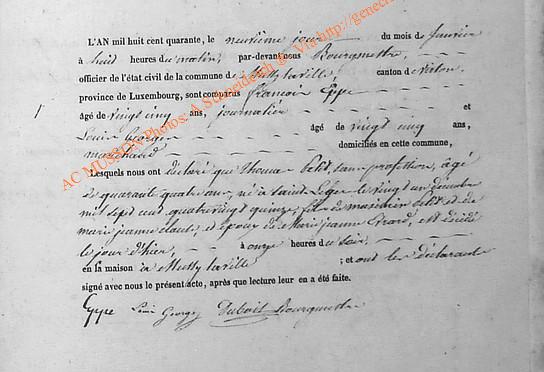 L'AN mil huit cent quarante, le neuvième jour du mois de Janvier
à huit heures de matin, par-devant nous Bourgmestre
officier de l'état civil de la commune de canton de Virton,
province de Luxembourg, sont comparus François Eppe
âgé de vingt cinq ans, journalier et
Louis George âgé de vingt cinq ans,
marechand domiciliés en cette commune,
Lesquels nous ont déclaré que Thomas Petit, sans profession, âgé
de quarante quatre ans, né à Saint Léger le vingt un décembre
mil sept cent quatre vingt quinze, fils de Petit et de
marie jeanne et époux de Marie jeanne Evrard, est décédé
le jour d'hier, à onze heures du soir,
en la maison à ; et ont les déclarants
signé avec nous le présent acte, après que lecture leur en a été faite.
Eppe Louis George Dubois Bourgmestre
AC MUSSON Photos: A. Schneiderich © Via http://genecr